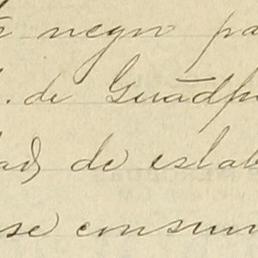 negro pa
. de Guadpe
ad de estab
se consum